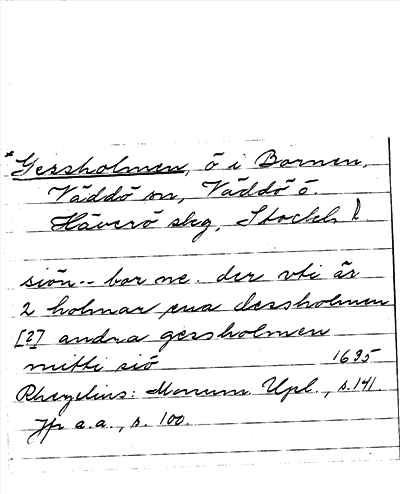 *Gersholmen, ö i Barnen,
Väddö sn, Väddö ö.
Häverö skg, Stockh. l.
siön -- barne. der vti är
2 holmar ena dersholmen
[?] andra gersholmen
mitti siö 1635
Rhezelius: Monum. Upl., s. 141.
Jfr a.a., s. 100.